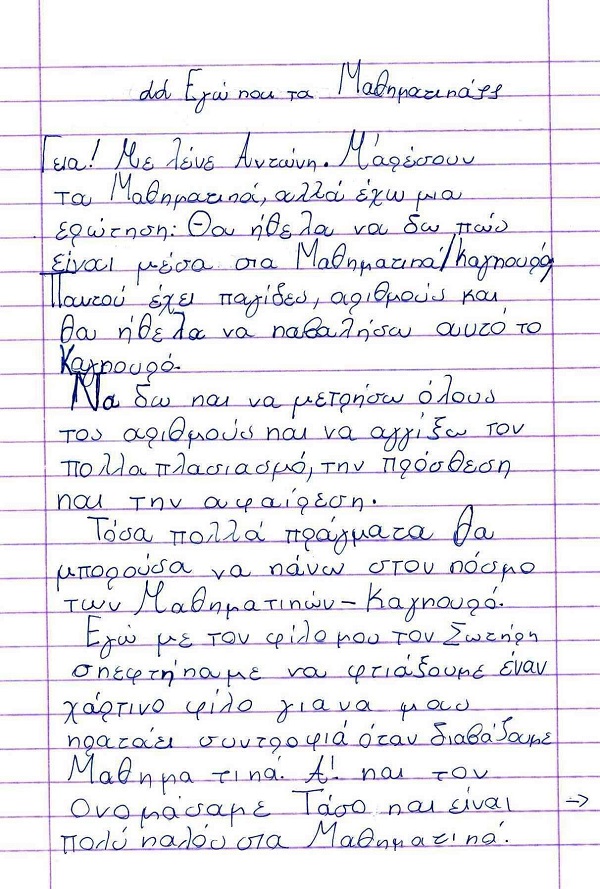 "Εγώ και τα Μαθηματικά"
Γεια! Με λένε Αντώνη. Μ'αρέσουν
τα Μαθηματικά, αλλά έχω μια
ερώτηση: Θα ήθελα να δω πώς
είναι μέσα στα Μαθηματικά/Καγκουρό,
Παυτού έχει παγίδες, αριθμούς και
θα ήθελα να καβαλήσω αυτό το
Καγκουρό.
Να δω και να μετρήσω όλους
τος αριθμούς και να αγγίξω τον
πολλαπλασιασμό, την πρόσθεση
και την αφαίρεση.
Τόσα πολλά πράγματα θα
μπορούσα να κάνω στον κόσμο
των Μαθηματικών - Καγκουρό.
Εγώ με τον φίλο μου τον Σωτήρη
σκεφτήκαμε να φτιάξουμε έναν
χάρτινο φίλο για να μας
κρατάει συντροφιά όταν διαβάζουμε
Μαθηματικά. Α! και τον
Ονομάσαμε Τάσο και είναι →
πολύ καλός στα Μαθηματικά.